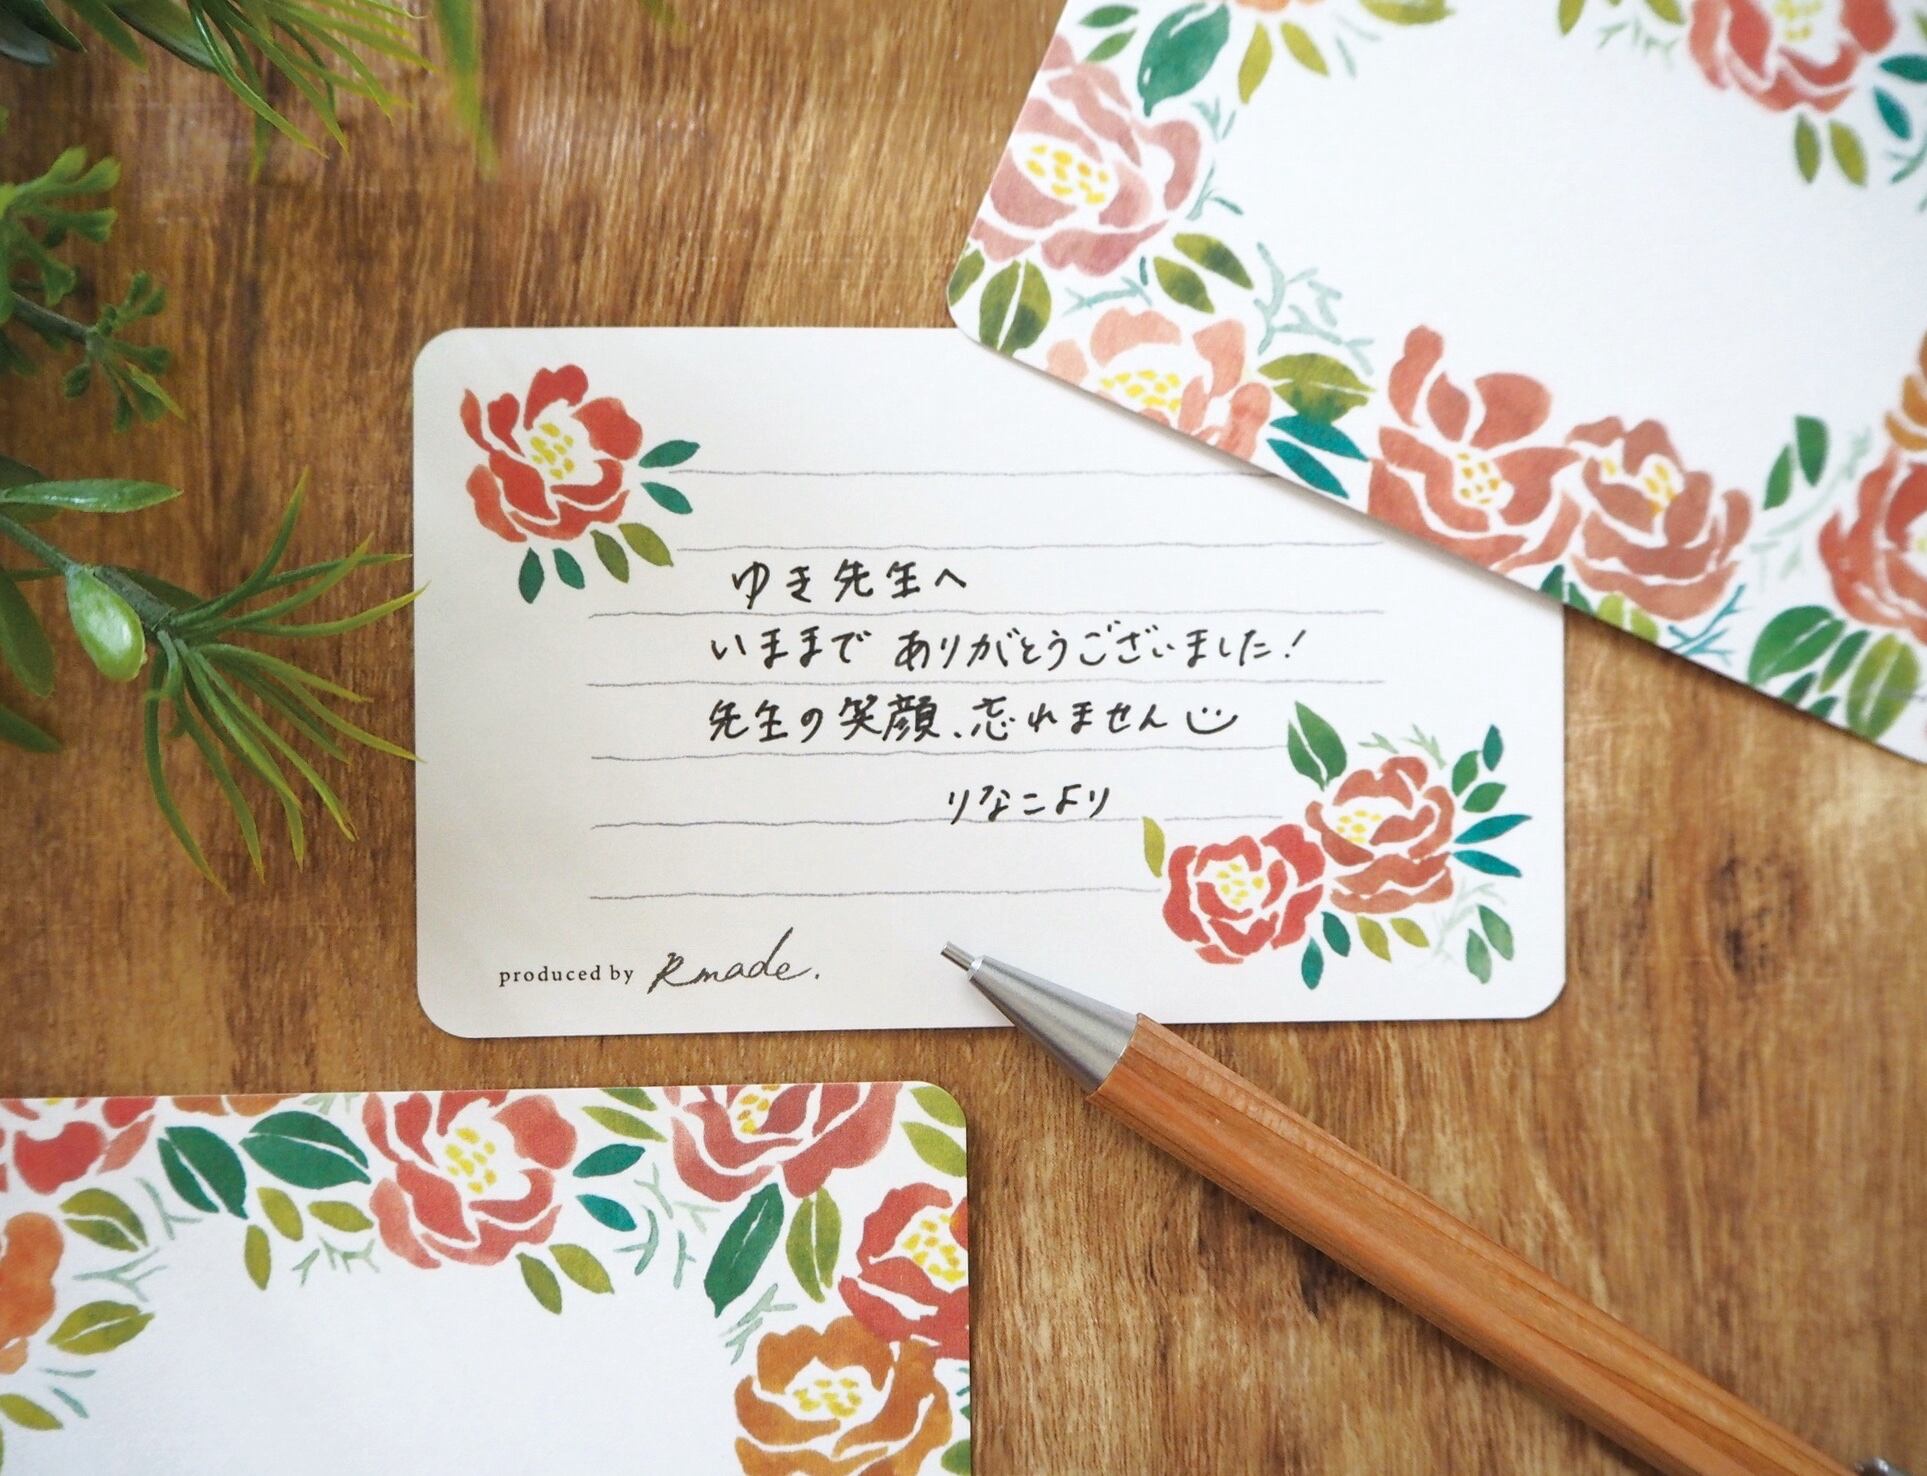 ゆき先生へ
いままで ありがとうございました!
先生の笑顔、忘れません
りなこより
produced by Rmade.